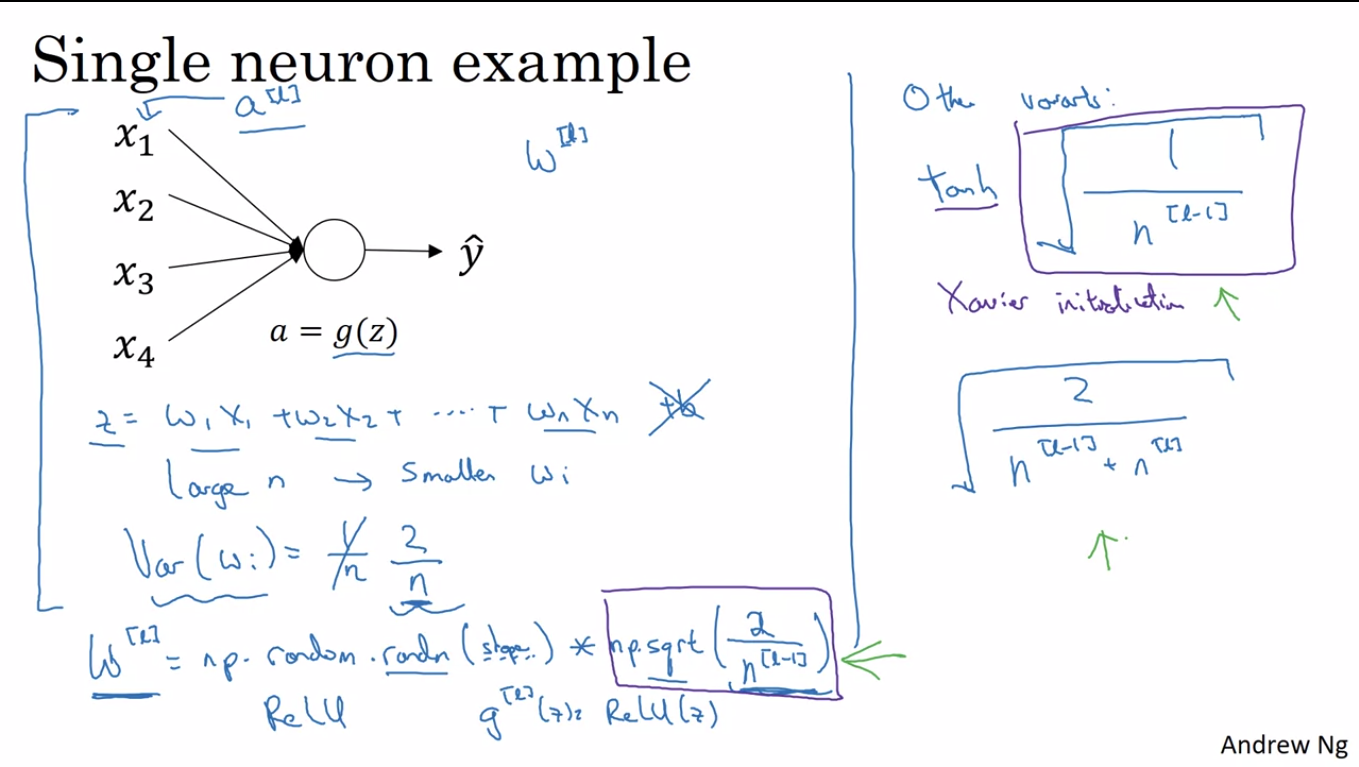 Single neuron example
a^[l]
x₁
x₂
x₃
x₄
w^[l]
ŷ
a = g(z)
z = w₁x₁ + w₂x₂ + ..... + wₙxₙ +b
Large n → Smaller wᵢ
Var(wᵢ) = 1/n 2/n
W^[l] = np.random.randn(shape) * np.sqrt(2/n^[l-1])
ReLU g^[l](z) = ReLU(z)
Other variants:
tanh √(1/n^[l-1])
Xavier initialization ↑
√(2/(n^[l-1] + n^[l]))
↑
Andrew Ng